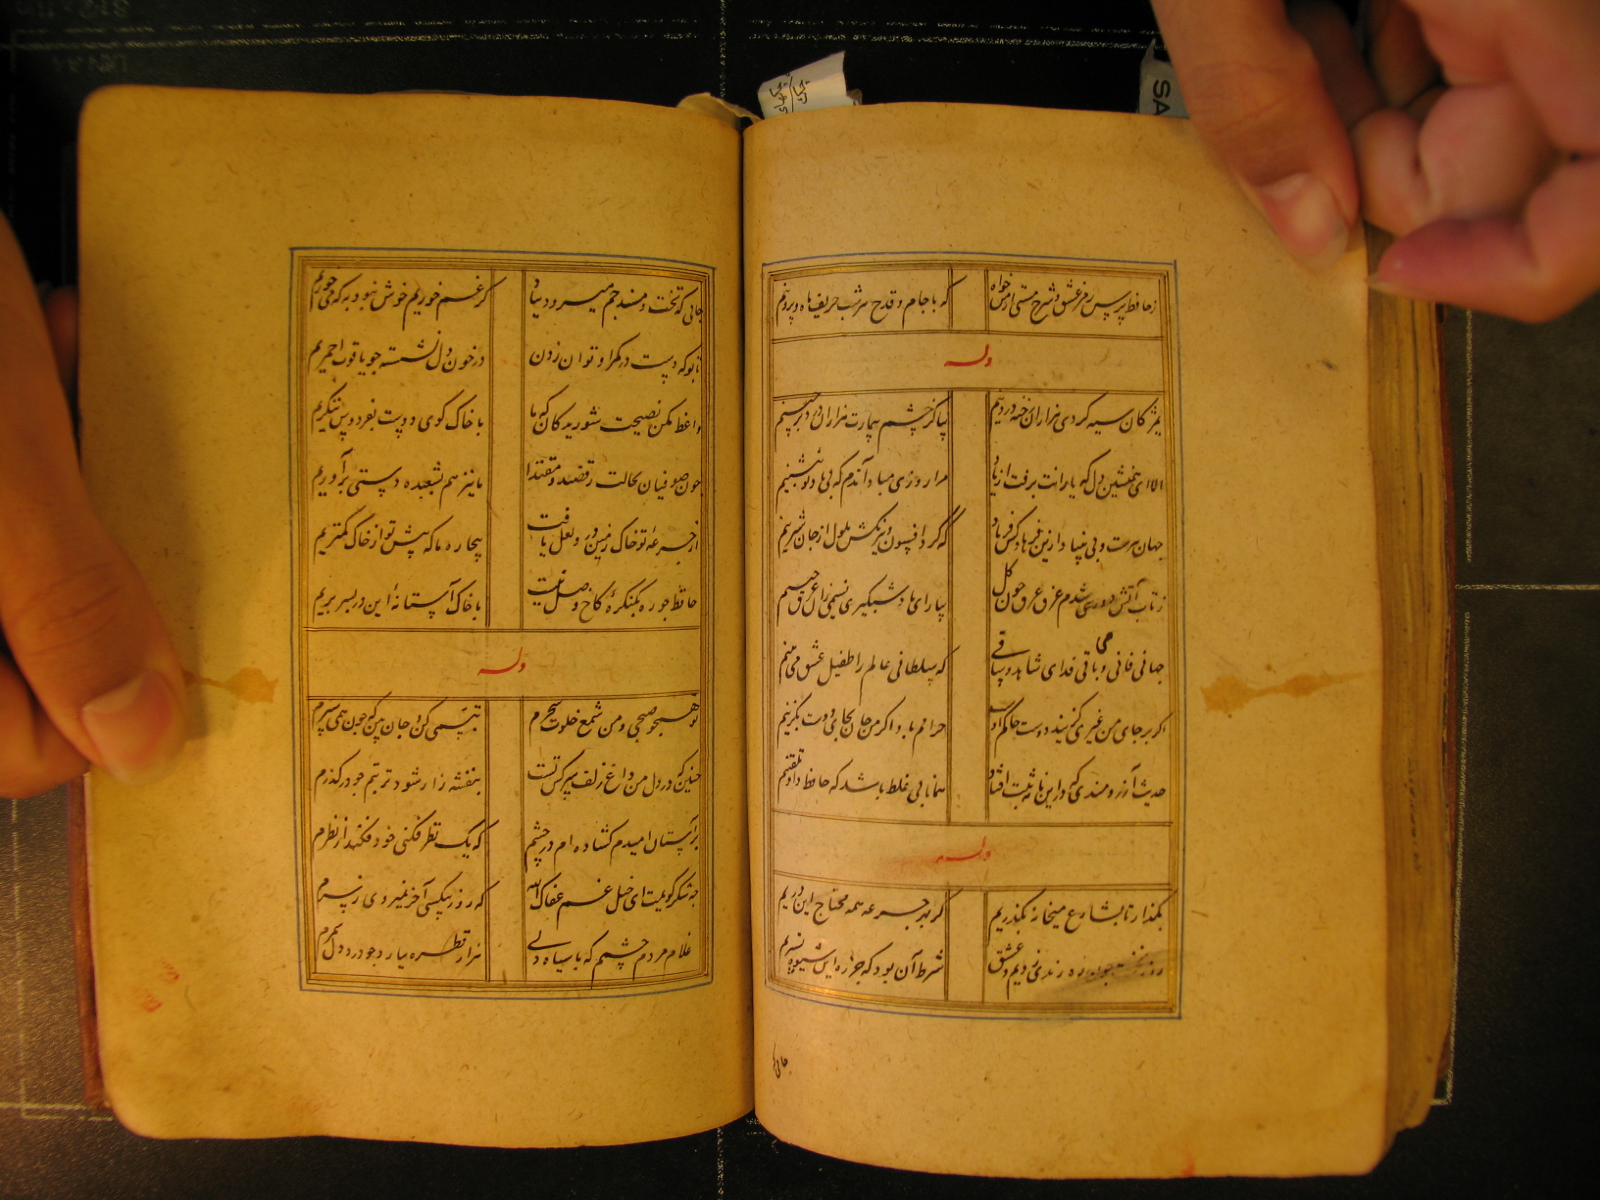 ز حافظ پرس رمز عشق و شرح مستی از من خواه که با جام و قدح هر شب حریف ماه و پروینم
وله
بمژگان سیه کردی هزاران رخنه در دینم بیا کز چشم بیمارت هزاران درد برچینم
الا ای همنشین دل که یارانت برفت از یاد مرا روزی مباد آندم که بی یاد تو بنشینم
جهان پیرست و بی بنیاد ازین فرهادکش فریاد که کرد افسون و نیرنگش ملول از جان شیرینم
ز تاب آتش دوری شدم غرق عرق چون گل بیار ای باد شبگیری نسیمی زان عرق چینم
جهانی فانی و باقی فدای شاهد و ساقی که سلطانی عالم را طفیل عشق می بینم
اگر بر جای من غیری گزیند دوست حاکم اوست حرامم باد اگر من جان بجای دوست بگزینم
حدیث آرزومندی که در این نامه ثبت افتاد همانا بی غلط باشد که حافظ داد تلقینم
وله
بگذار تا بشارع میخانه بگذریم کز بهر جرعه همه محتاج این دریم
روز نخست چون دم رندی زدیم و عشق شرط آن بود که جز ره این شیوه نسپریم
جائی که
جائی که تخت و مسند جم میرود بباد گر غم خوریم خوش نبود به که می خوریم
تا بو که دست در کمر او توان زدن در خون دل نشسته چو یاقوت احمریم
واعظ مکن نصیحت شوریدگان که ما با خاک کوی دوست بفردوس ننگریم
چون صوفیان بحالت رقصند و مقتدا ما نیز هم بشعبده دستی برآوریم
از جرعه تو خاک زمین در و لعل یافت بیچاره ما که پیش تو از خاک کمتریم
حافظ چو ره بکنگره کاخ وصل نیست با خاک آستانه این در بسر بریم
وله
تو همچو صبحی و من شمع خلوت سحرم تبسمی کن و جان بین که چون همی سپرم
چنین که در دل من داغ زلف سرکش تست بنفشه زار شود تربتم چو درگذرم
بر آستان امیدم گشاده ام در چشم که یک نظر فکنی خود فکندی از نظرم
چه شکر گویمت ای خیل غم عفاک الله که روز بیکسی آخر نمیروی ز سرم
غلام مردم چشمم که با سیاه دلی هزار قطره ببارد چو درد دل شمرم